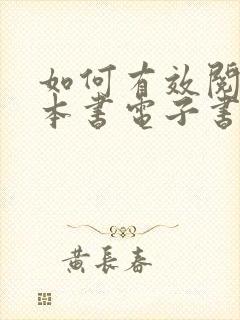 如何有效閱
本書電子書
黃長春